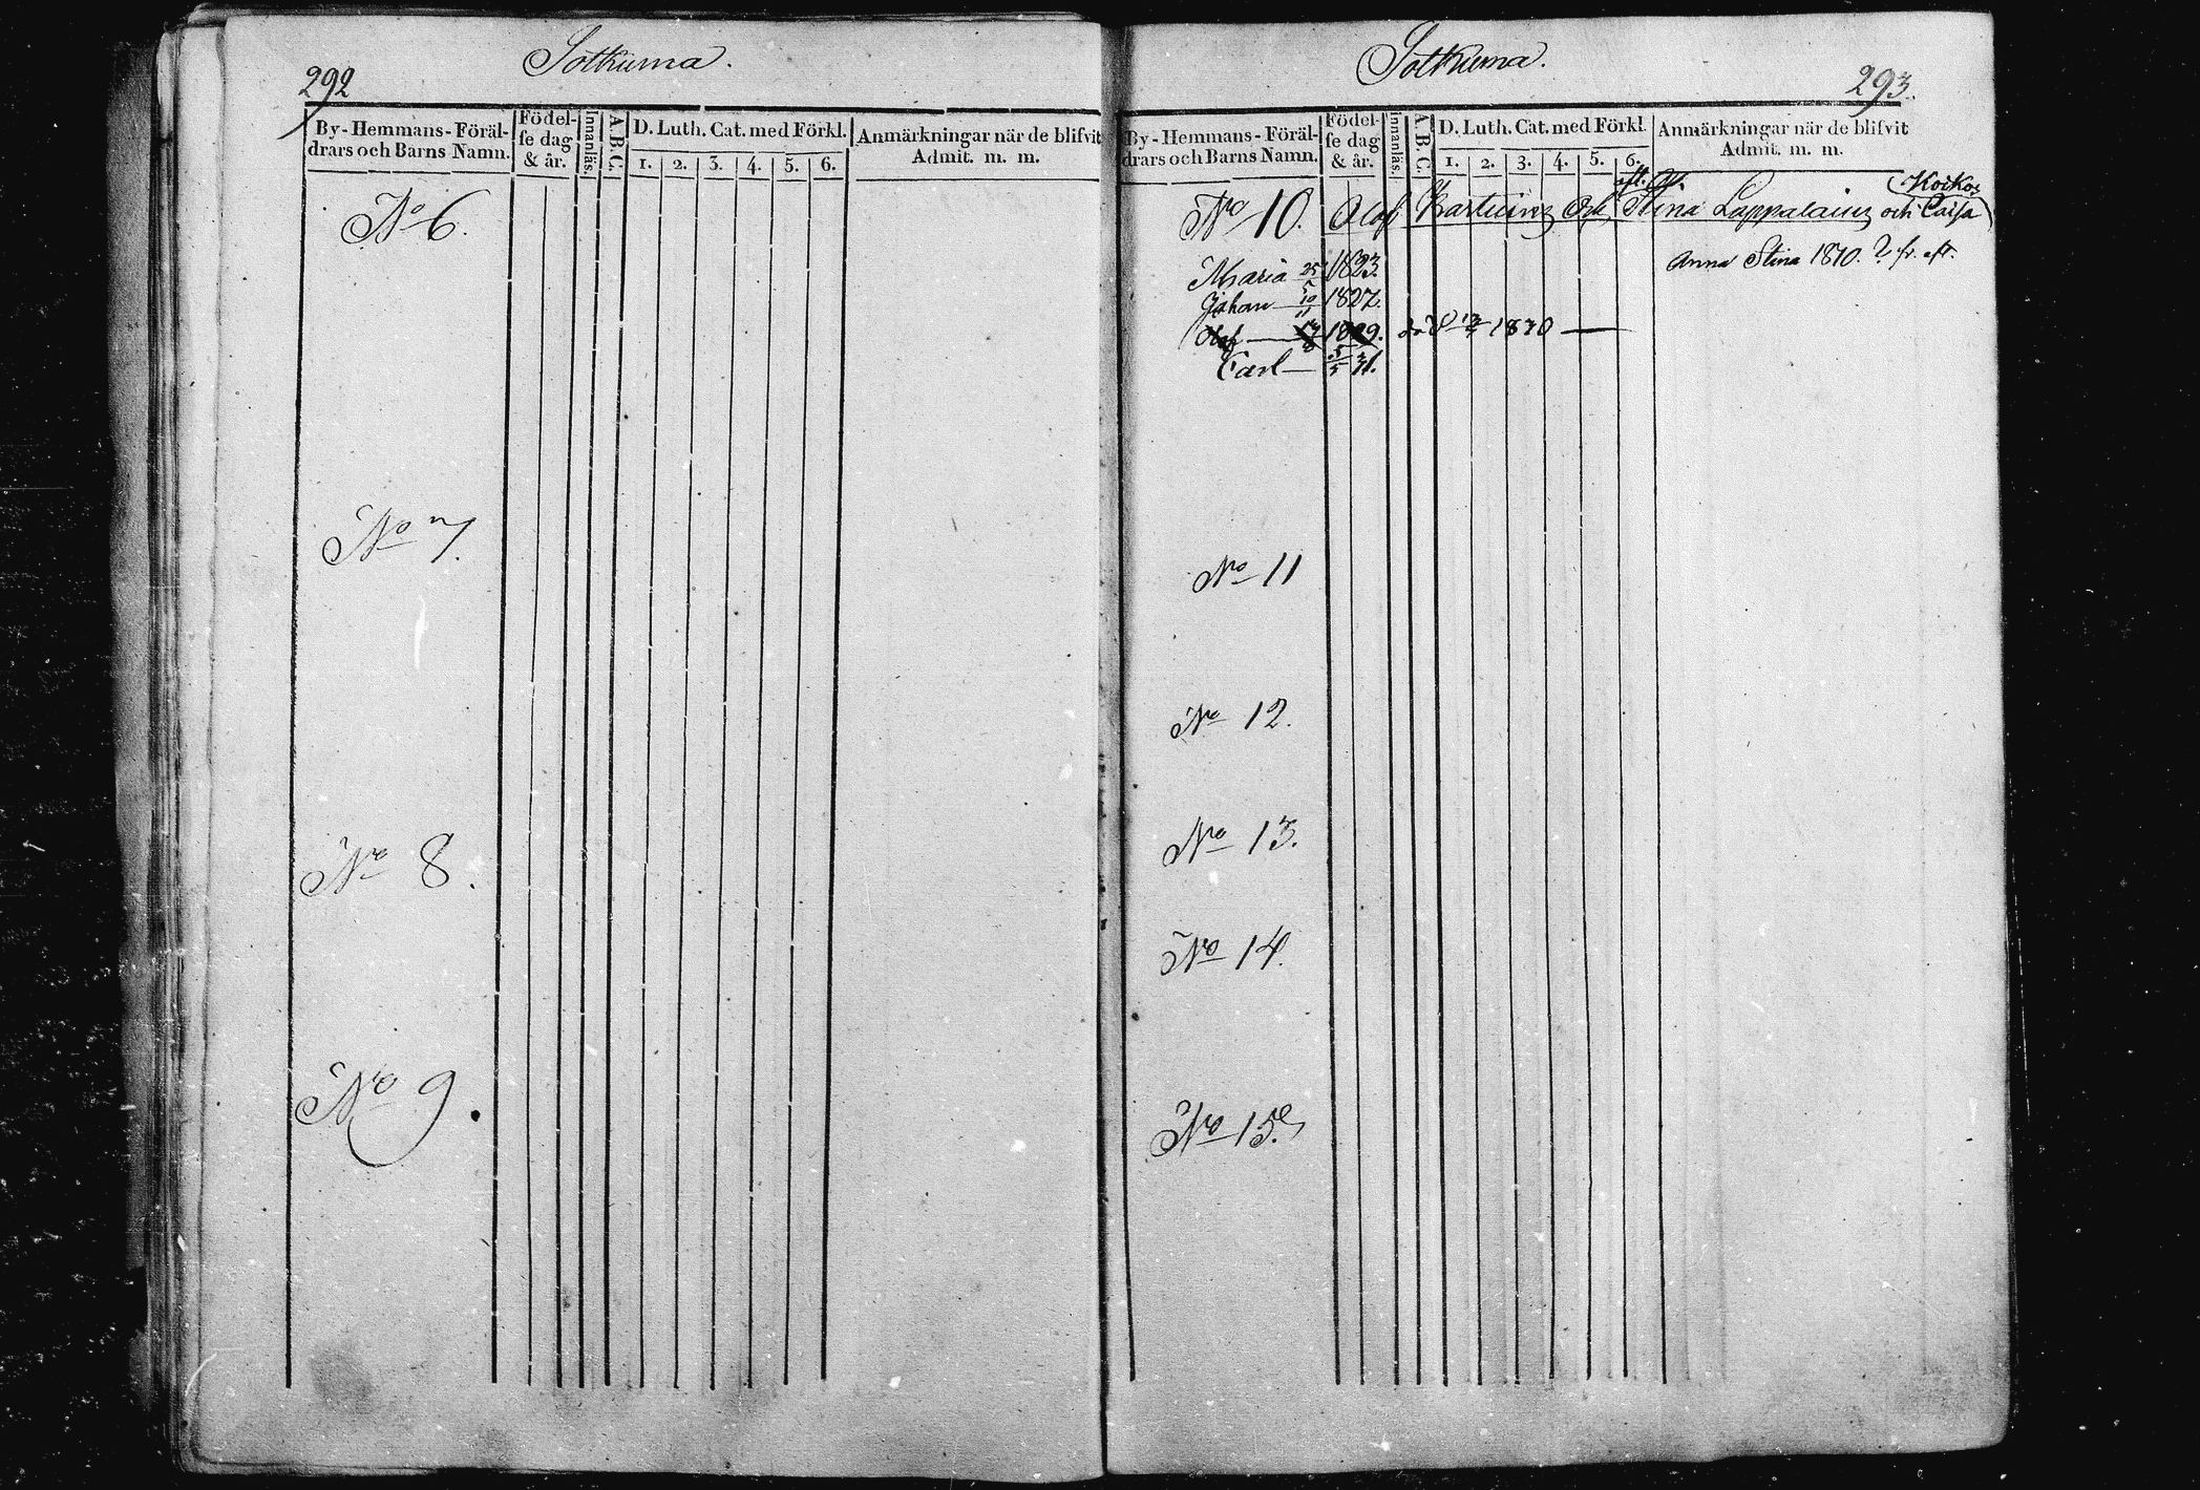 292
Sotkuma.
By-Hemmans-Föräl-
drars och Barns Namn.
Födel-
se dag
& år.
Innanläs.
A.B.C.
D. Luth. Cat. med Förkl.
1. 2. 3. 4. 5. 6.
Anmärkningar när de blifvit
Admit. m. m.
No 6.
No 7.
No 8.
No 9.
Sotkuma.
293.
By-Hemmans-Föräl-
drars och Barns Namn.
Födel-
se dag
& år.
Innanläs.
A.B.C.
D. Luth. Cat. med Förkl.
1. 2. 3. 4. 5. 6.
Anmärkningar när de blifvit
Admit. m. m.
No 10. Olof Karttuinen Och Stina Lappalain och Caisa
Anna Stina 1810.
Maria 25 1823.
Johan 10/11 1827.
Olof 1829. död 1830
Carl 5/5 31.
No 11
No 12.
No 13.
No 14.
No 15.